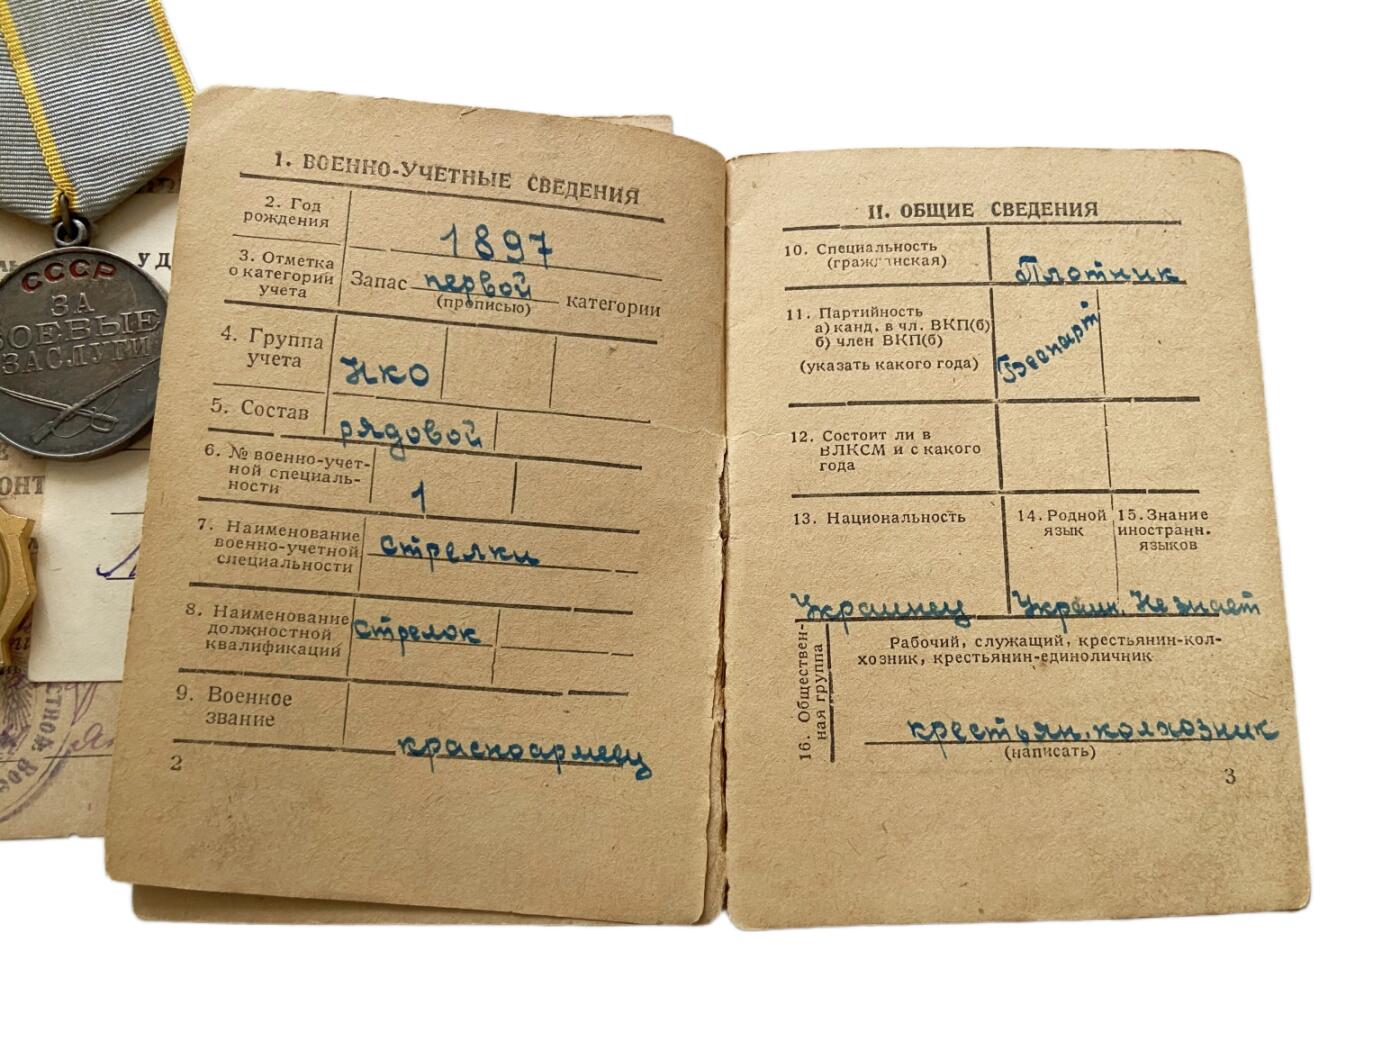 СССР
ЗА
БОЕВЫЕ
ЗАСЛУГИ
УД
ОНТ
1. ВОЕННО-УЧЕТНЫЕ СВЕДЕНИЯ
2. Год
рождения
1897
3. Отметка
о категории
учета
Запас первой категории
(прописью)
4. Группа
учета
НКО
5. Состав
рядовой
6. № военно-учет-
ной специаль-
ности
1
7. Наименование
военно-учетной
специальности
стрелки
8. Наименование
должностной
квалификаций
стрелок
9. Военное
звание
красноармеец
2
II. ОБЩИЕ СВЕДЕНИЯ
10. Специальность
(гражданская)
Плотник
11. Партийность
а) канд. в чл. ВКП(б)
б) член ВКП(б)
(указать какого года)
Беспарт
12. Состоит ли в
ВЛКСМ и с какого
года
13. Национальность
Украинец
14. Родной
язык
Украин.
15. Знание
иностранн.
языков
Не знает
16. Обществен-
ная группа
Рабочий, служащий, крестьянин-кол-
хозник, крестьянин-единоличник
крестьян. колхозник
(написать)
3